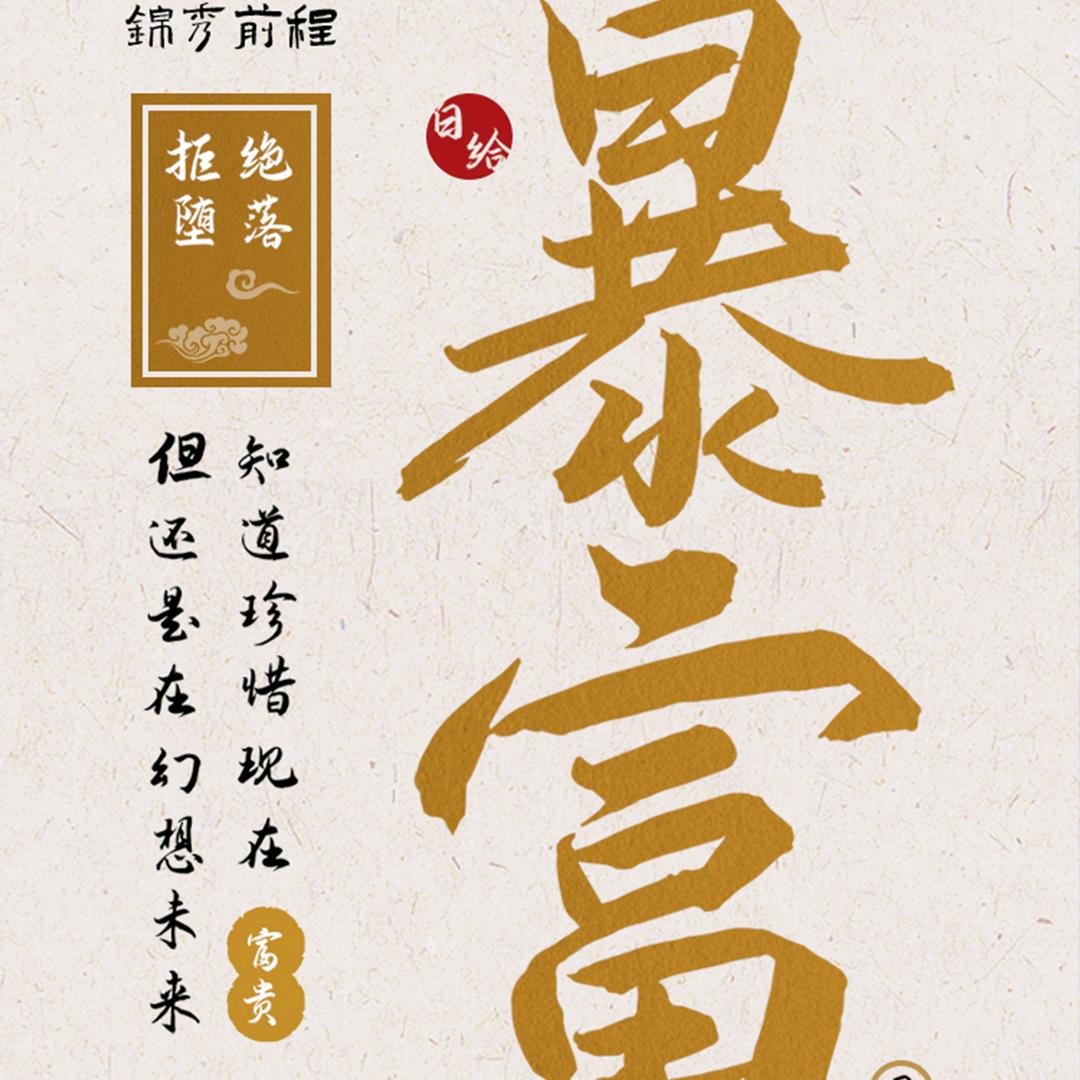 錦秀前程
暴富
日给
绝落
拒堕
知道珍惜现在
富贵
但还是在幻想未来